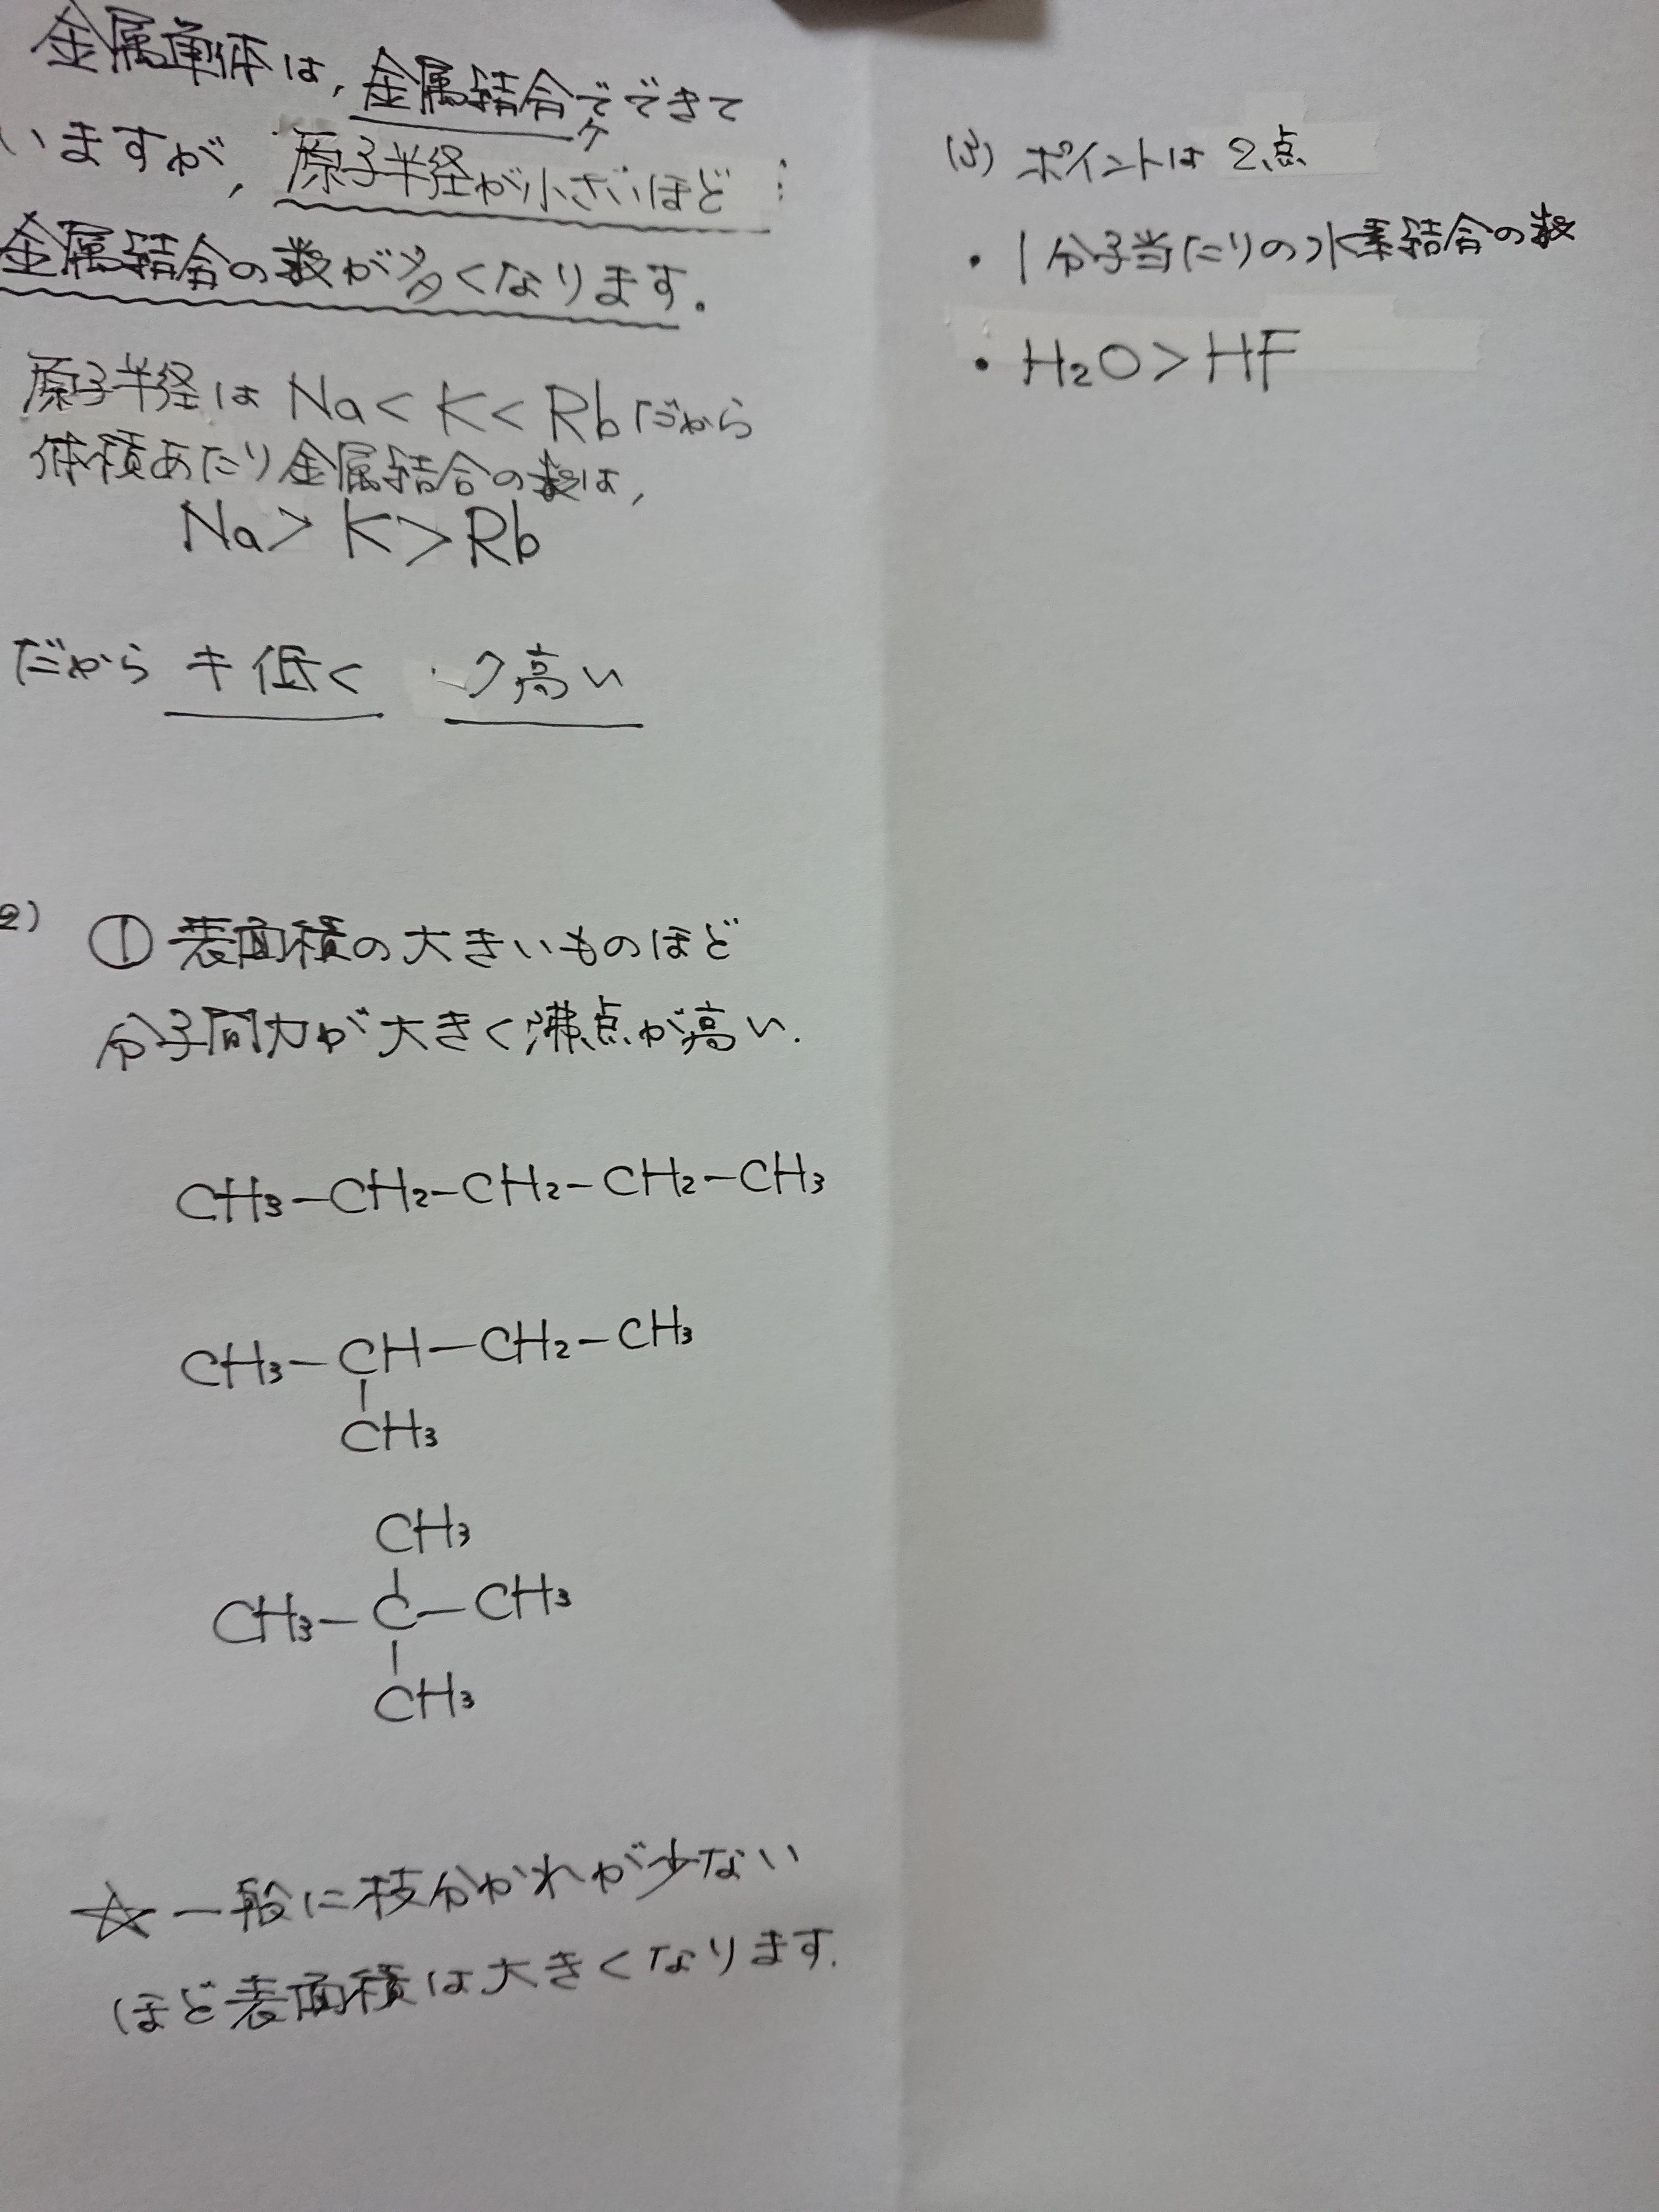 金属単体は，金属結合でできて
ケ
いますが，原子半径が小さいほど
金属結合の数が多くなります。
原子半径は Na < K < Rb だから
体積あたり金属結合の数は，
Na > K > Rb
だから キ 低く ク 高い
2) ① 表面積の大きいものほど
分子間力が大きく沸点が高い.
CH3-CH2-CH2-CH2-CH3
CH3-CH-CH2-CH3
CH3
CH3
CH3-C-CH3
CH3
☆一般に枝分かれが少ない
ほど表面積は大きくなります.
(3) ポイントは 2点
・1分子当たりの水素結合の数
・H2O > HF